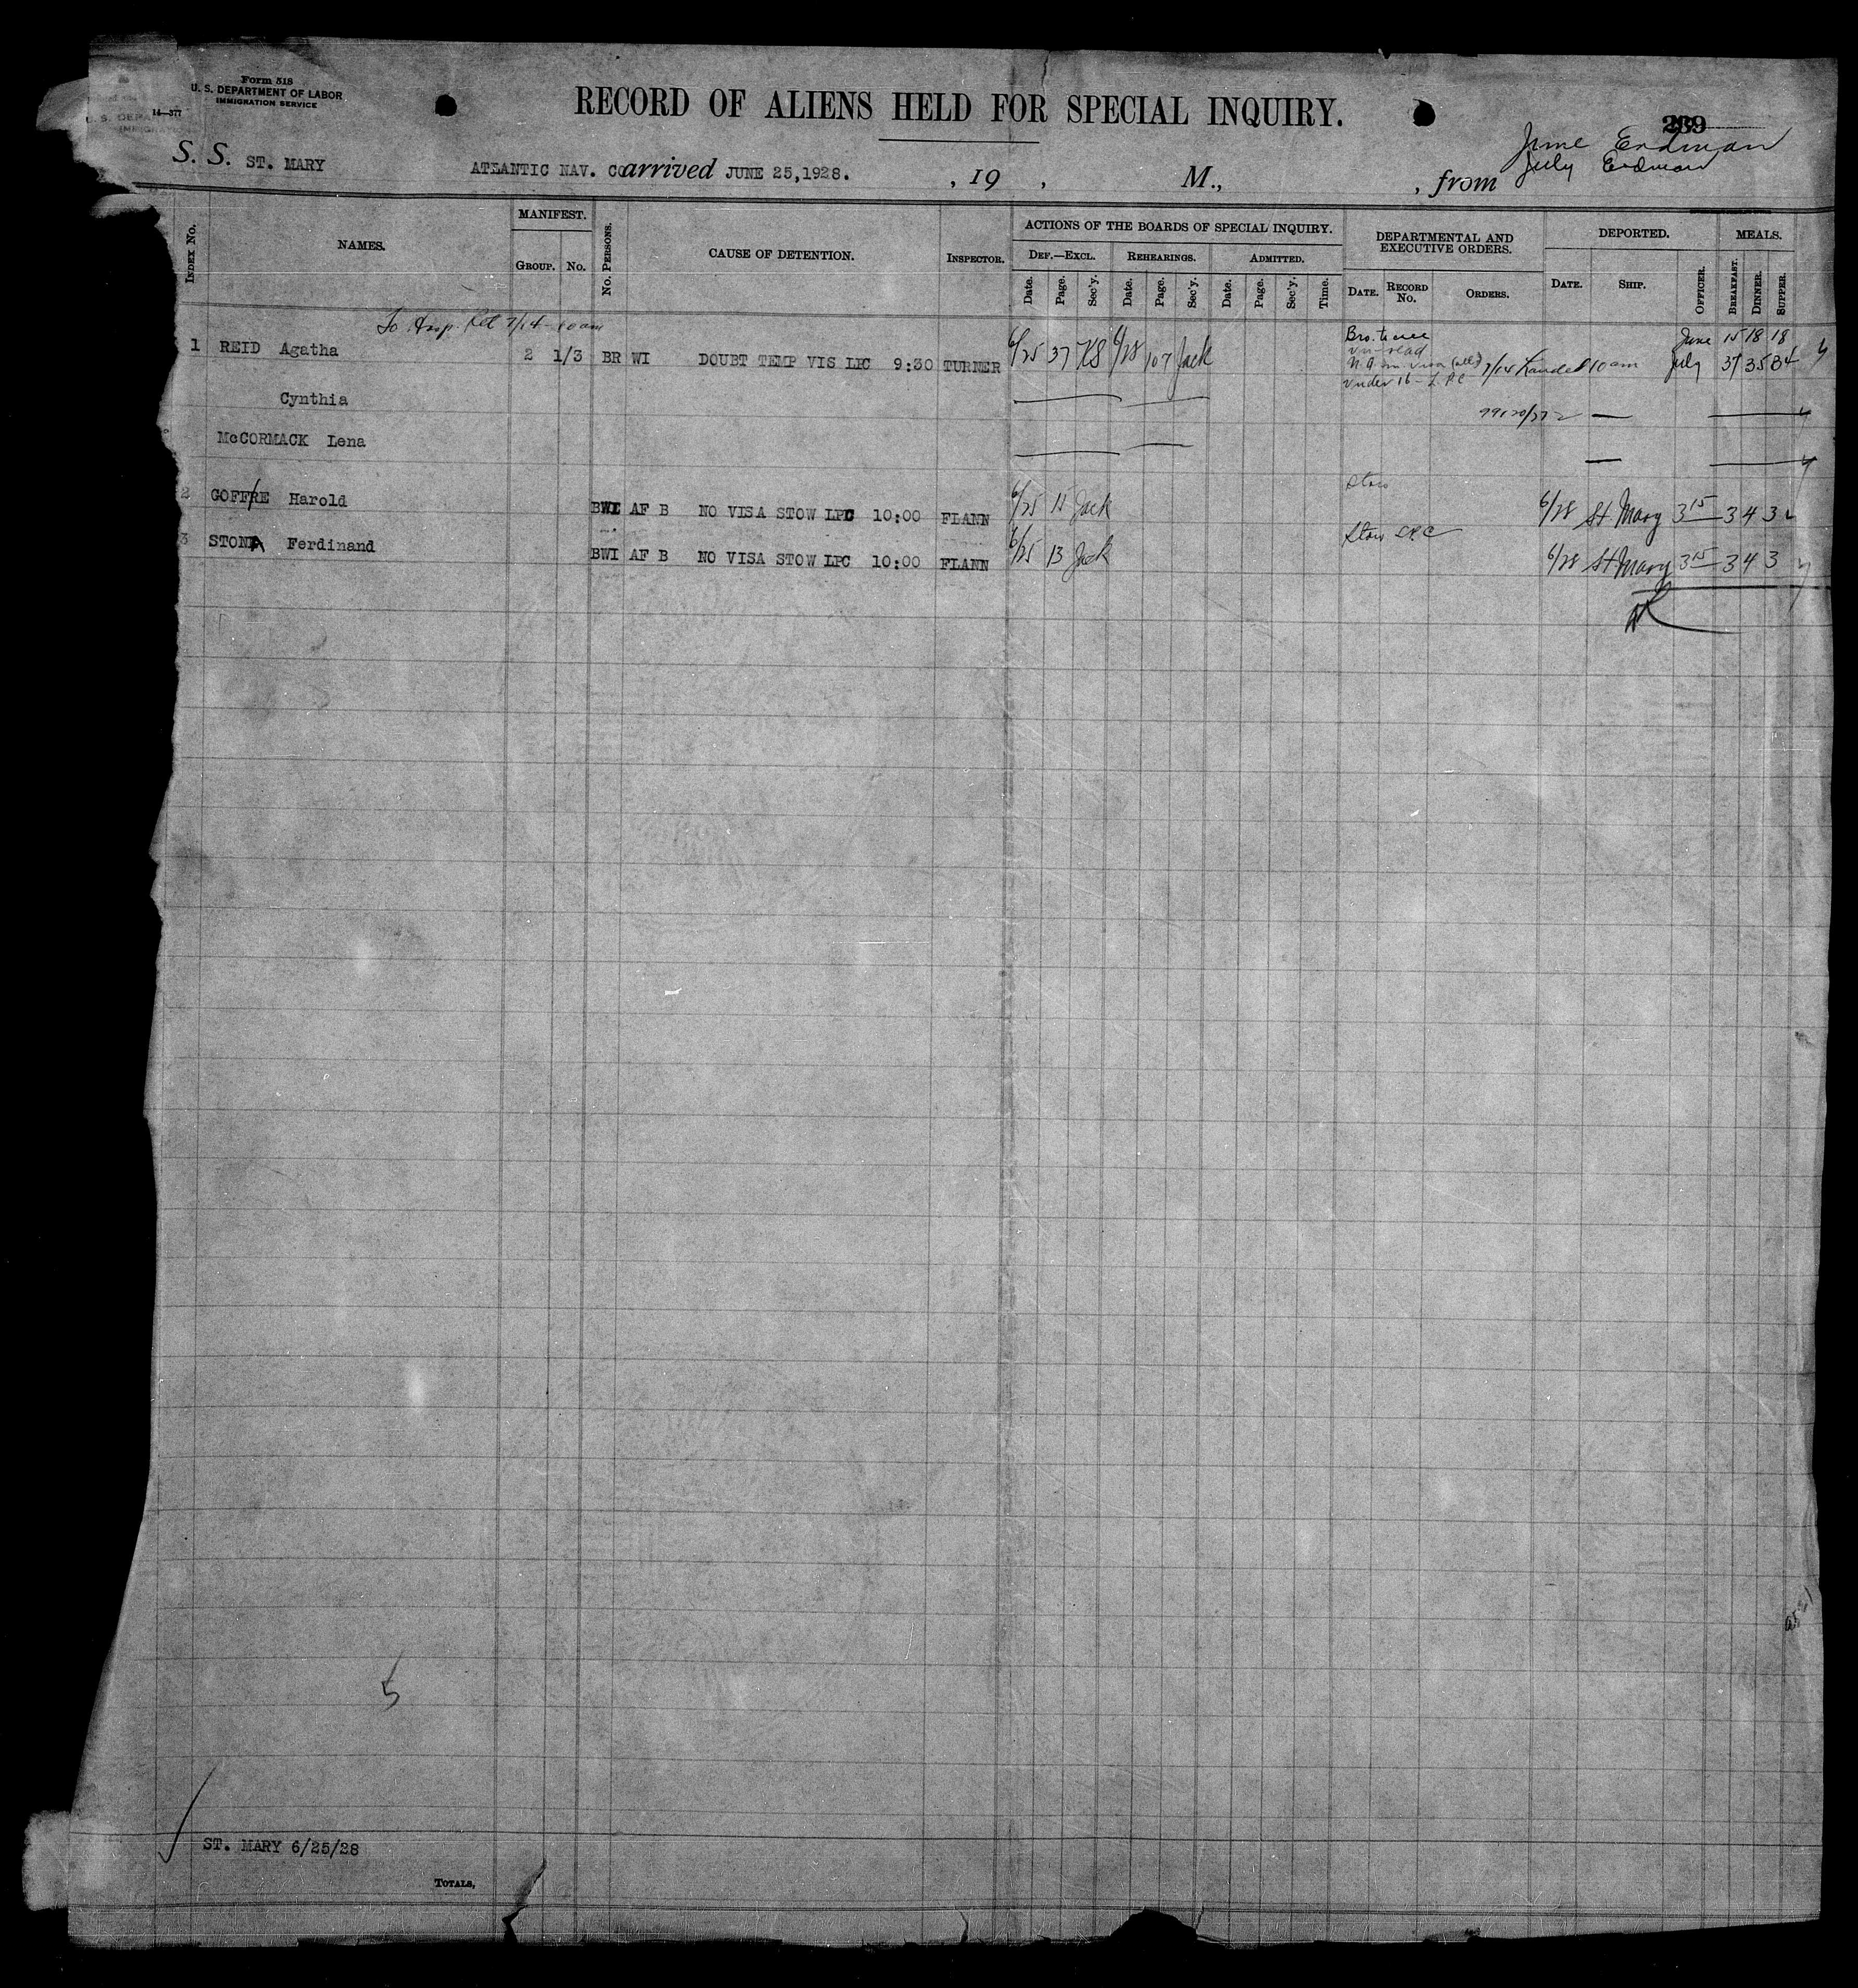 Form 518
U. S. DEPARTMENT OF LABOR
IMMIGRATION SERVICE
14—377
RECORD OF ALIENS HELD FOR SPECIAL INQUIRY.
June Erdman
July Erdman
S. S. ST. MARY ATLANTIC NAV. CO arrived JUNE 25,1928. , 19 , M., , from
INDEX No. NAMES. MANIFEST. GROUP. No. No. PERSONS. CAUSE OF DETENTION. INSPECTOR. ACTIONS OF THE BOARDS OF SPECIAL INQUIRY. DEPARTMENTAL AND EXECUTIVE ORDERS. DEPORTED. MEALS.
DEF.—EXCL. REHEARINGS. ADMITTED.
Date. Page. Sec'y. Date. Page. Sec'y. Date. Page. Sec'y. Time. DATE. RECORD No. ORDERS. DATE. SHIP. OFFICER. BREAKFAST. DINNER. SUPPER.
To Hosp. Rel 7/14 - 10 am
June 15 18 18
1 REID Agatha 2 1/3 BR WI DOUBT TEMP VIS LPC 9:30 TURNER 6/25 37 KS 6/28 107 Jack
7/14 Landed 10 am July 37 35 34
under 16 - LPC
Cynthia 99120/372
McCORMACK Lena
Stow
2 GOFFRE Harold BWI AF B NO VISA STOW LPC 10:00 FLANN 6/25 15 Jack 6/28 St Mary 3 15 3 4 3
Stow LPC
3 STONA Ferdinand BWI AF B NO VISA STOW LPC 10:00 FLANN 6/25 13 Jack 6/28 St Mary 3 15 3 4 3
5
ST. MARY 6/25/28
TOTALS,